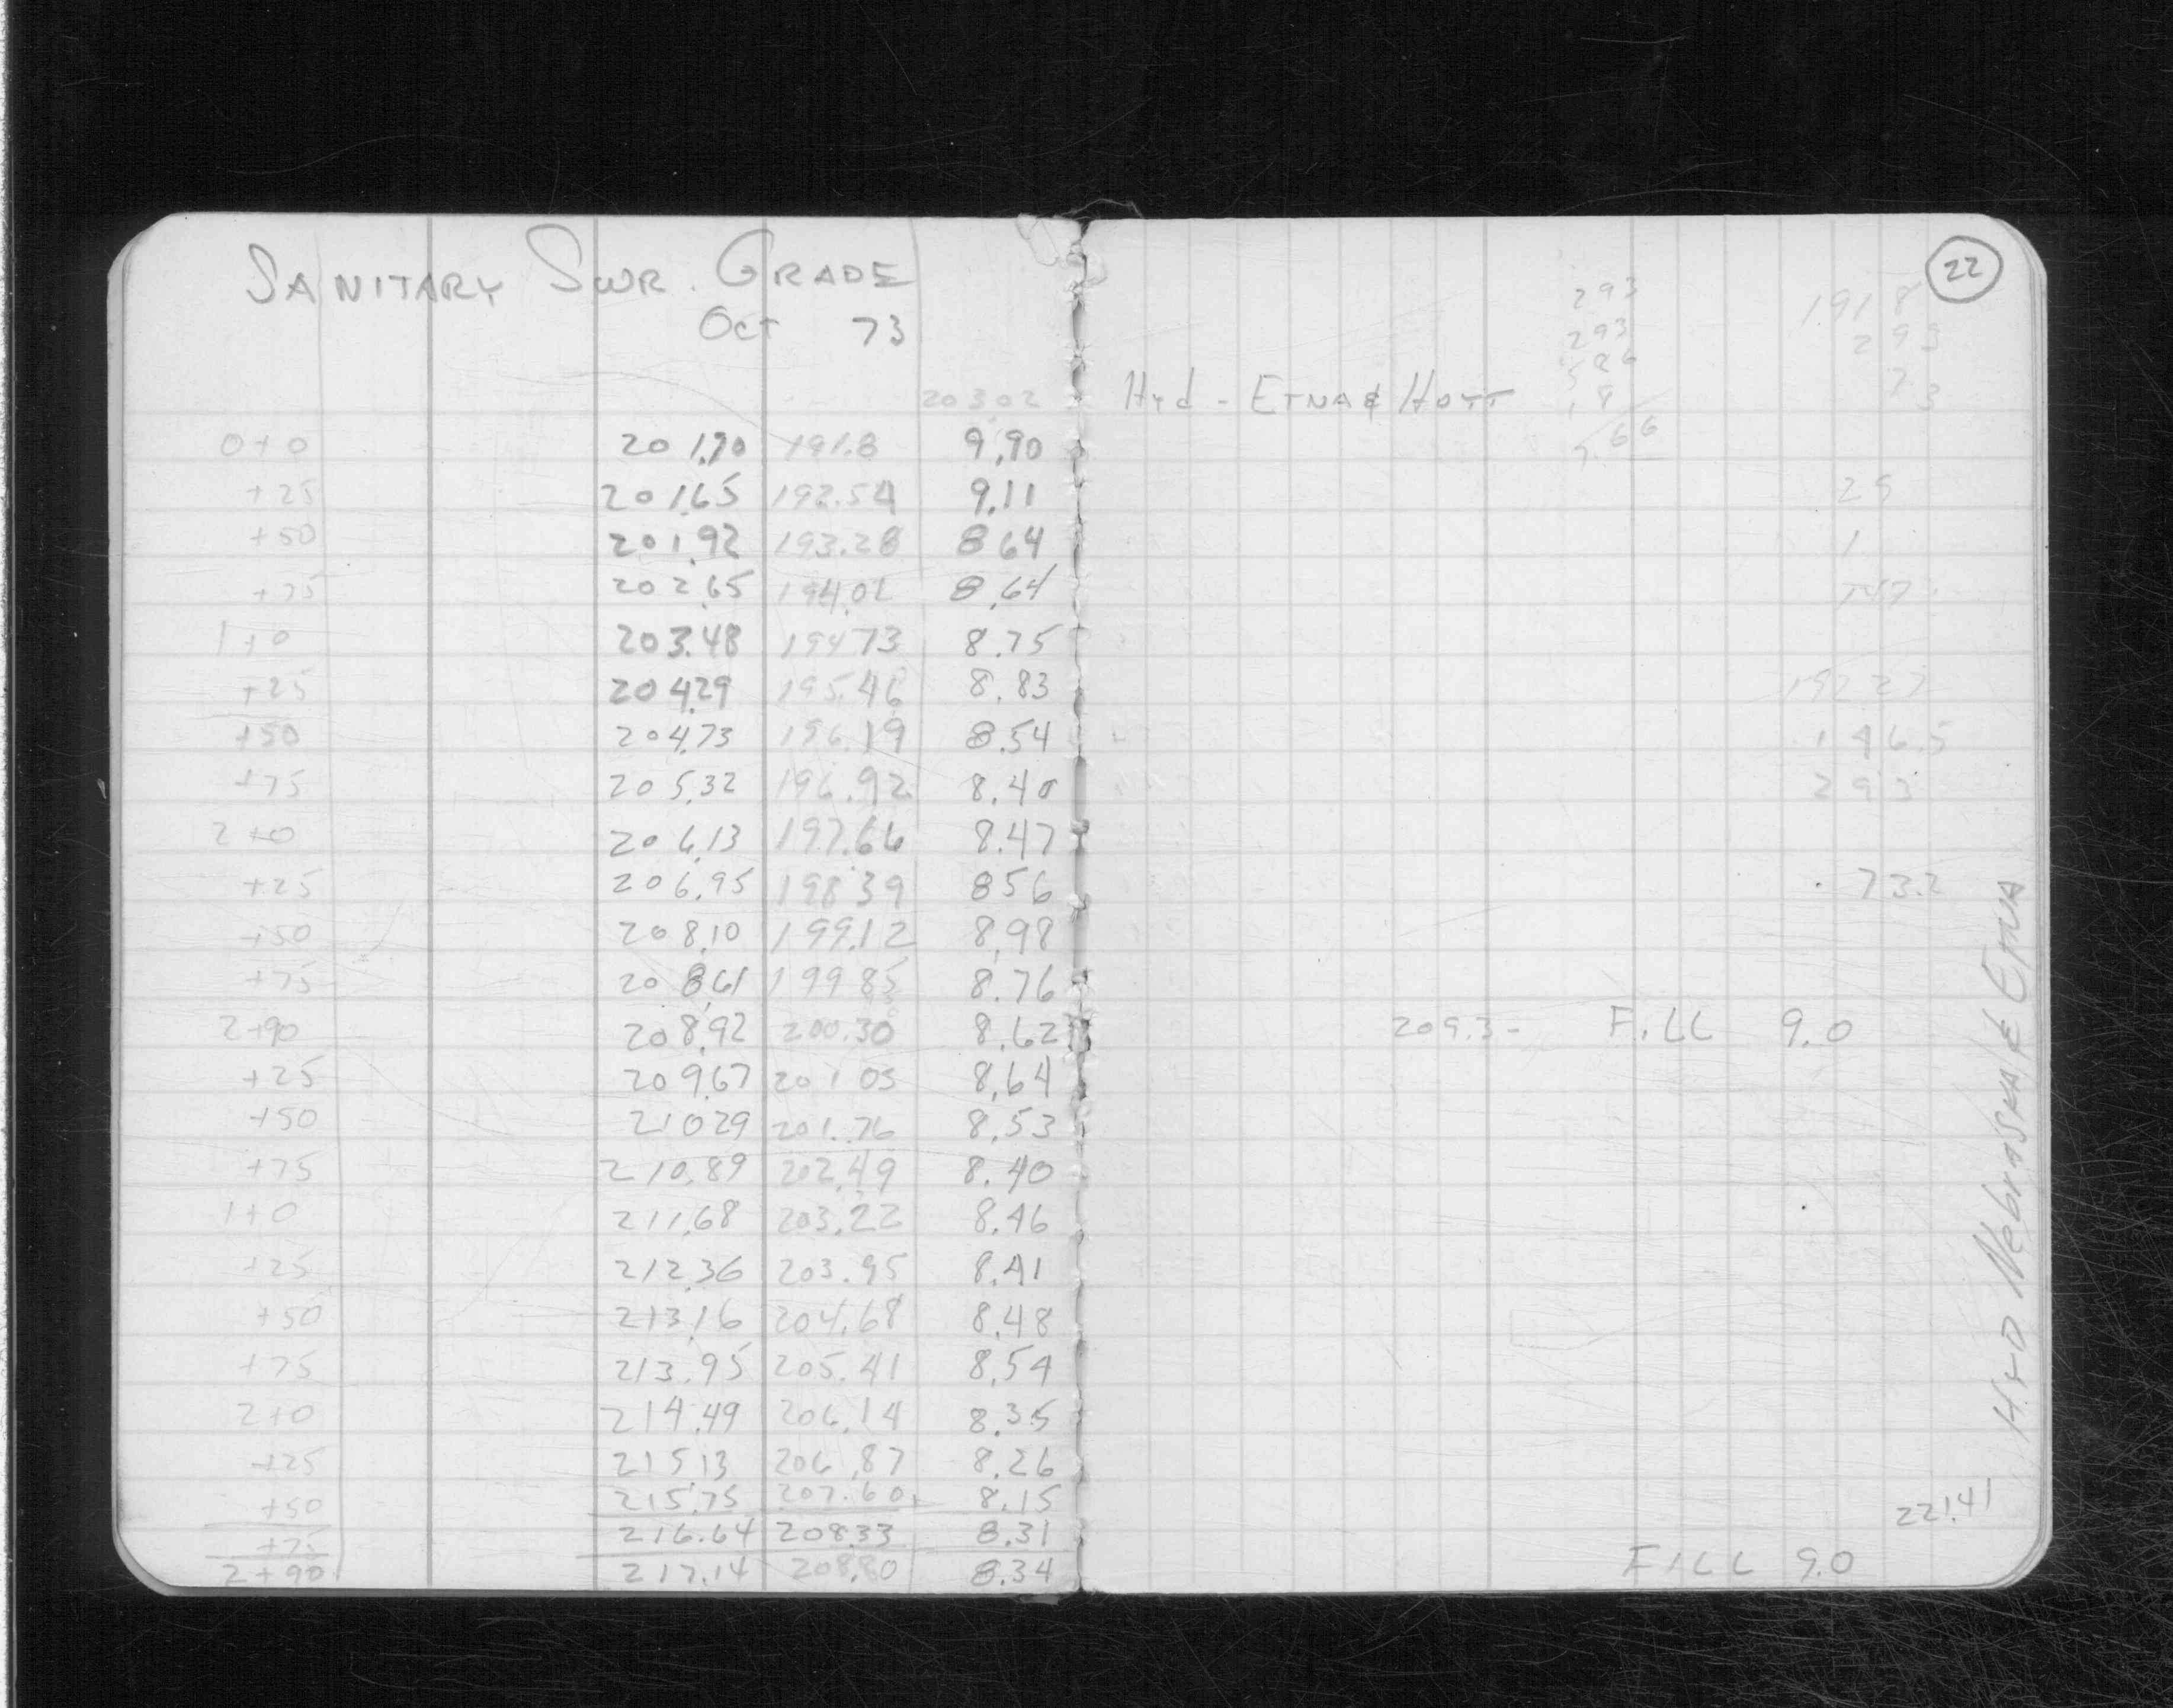 SANITARY SWR. GRADE
Oct 73
203.02
0+0 201.70 191.8 9.90
+25 201.65 192.54 9.11
+50 201.92 193.28 8 64
+75 202.65 194.01 8.64
1+0 203.48 194 73 8.75
+25 204.29 195.46 8.83
+50 204.73 196.19 8.54
+75 205.32 196.92 8.40
2+0 206.13 197.66 8.47
+25 206.95 198 39 8 56
+50 208.10 199.12 8.98
+75 208.61 199 85 8.76
2+90 208.92 200.30 8.62
+25 209.67 201 03 8.64
+50 210 29 201.76 8.53
+75 210.89 202.49 8.40
1+0 211.68 203.22 8.46
+25 212.36 203.95 8.41
+50 213.16 204.68 8.48
+75 213.95 205.41 8.54
2+0 214.49 206.14 8.35
+25 215.13 206.87 8.26
+50 215.75 207.60 8.15
+75 216.64 208.33 8.31
2+90 217.14 208.80 8.34
22
293
293
586
191 8
293
73
Hyd - ETNA & HOYT
7.66
25
1
192 27
146.5
293
73.2
209.3- FILL 9.0
HYD Nebraska & ETNA
221.41
FILL 9.0